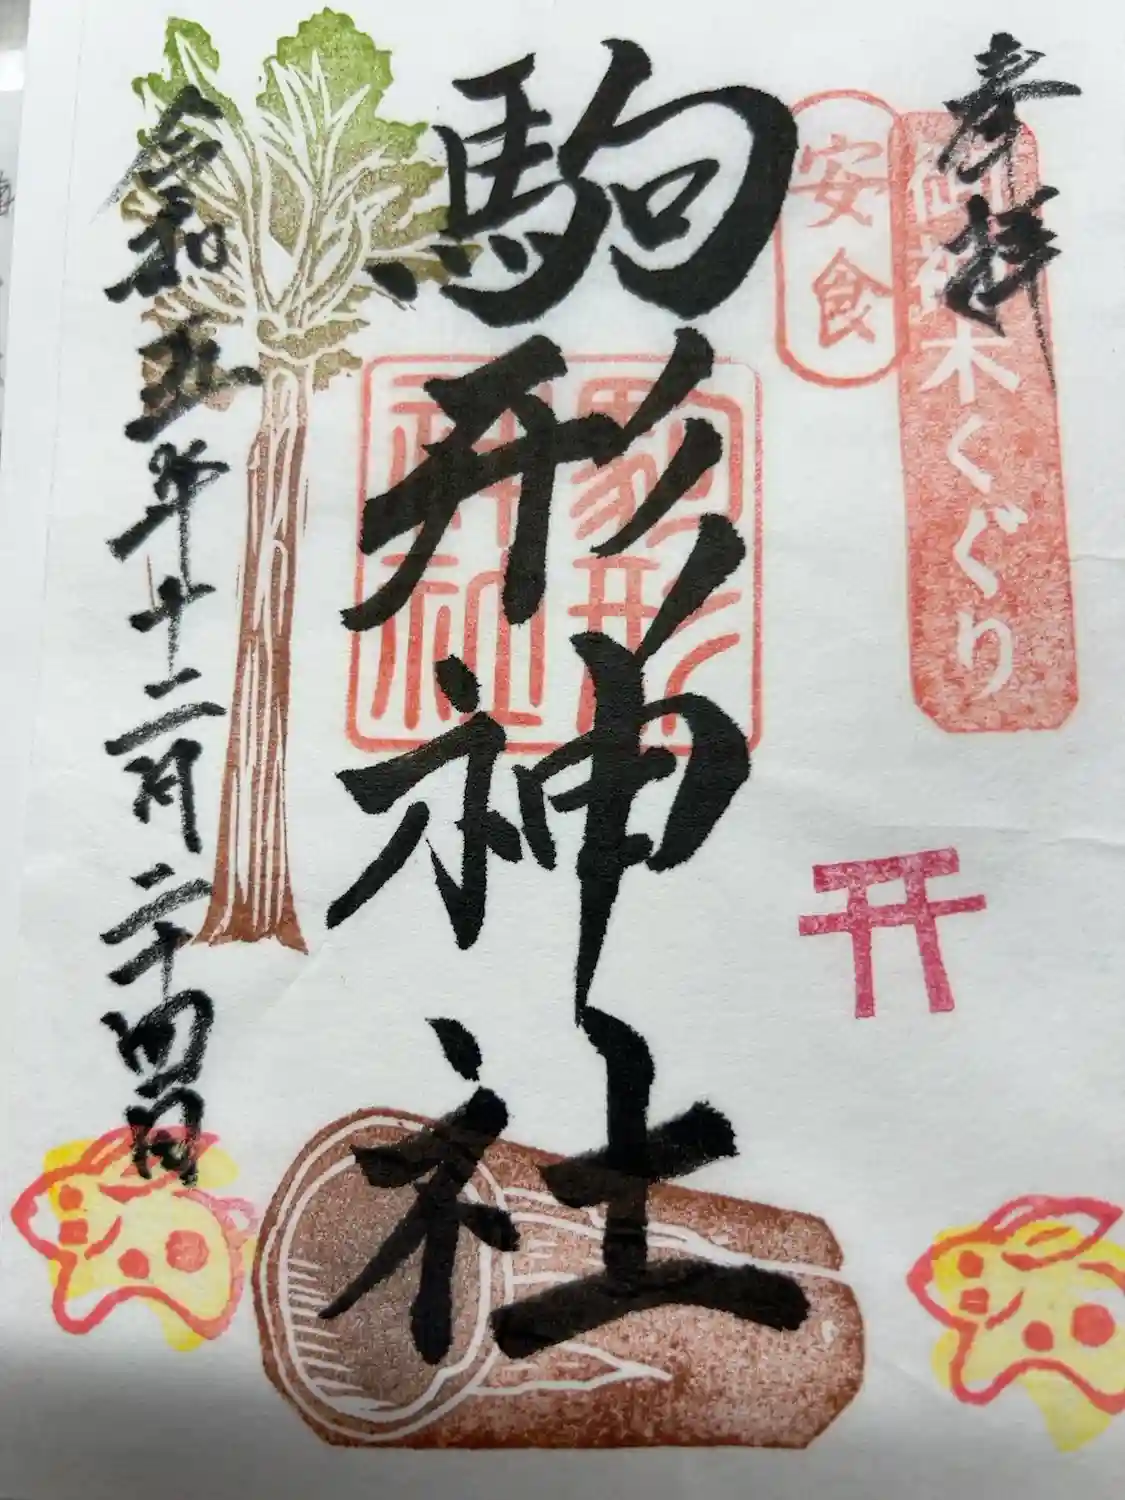 奉拝
御神木くぐり
安食
駒形神社
駒形
神社
令和五年十二月二十四日